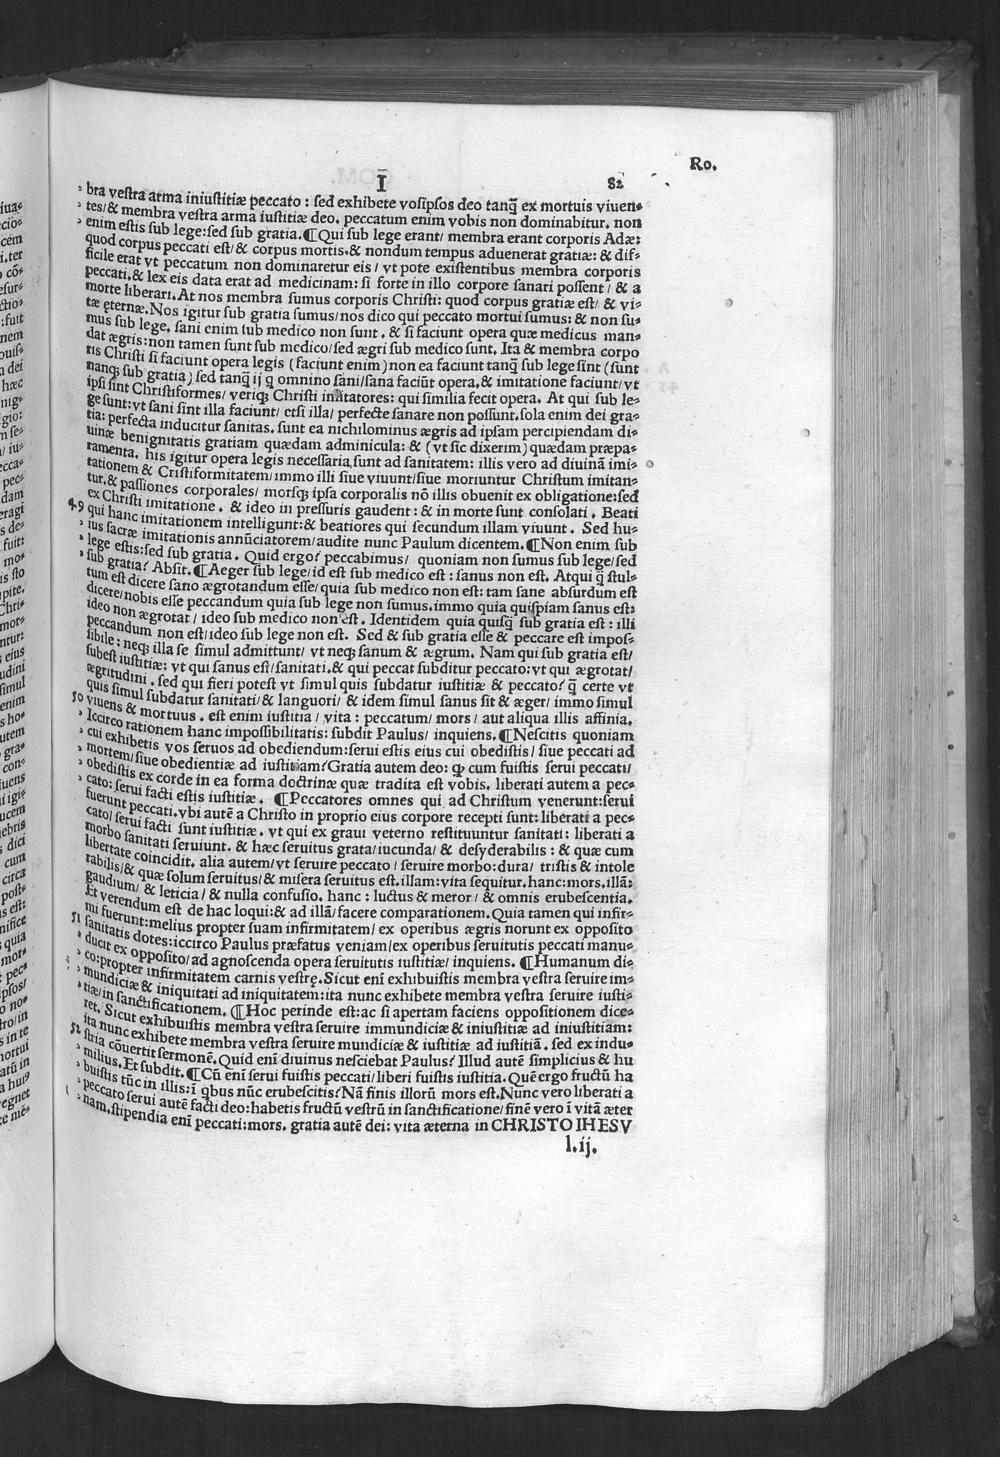 Ro.
I
82
bra veſtra arma iniuſtitiæ peccato : ſed exhibete voſipſos deo tanq̃ ex mortuis viuen⸗
tes/ & membra veſtra arma iuſtitiæ deo. peccatum enim vobis non dominabitur. non
enim eſtis ſub lege: ſed ſub gratia. ¶ Qui ſub lege erant/ membra erant corporis Adæ:
quod corpus peccati eſt/ & corpus mortis. & nondum tempus aduenerat gratiæ: & dif⸗
ficile erat vt peccatum non dominaretur eis/ vt pote exiſtentibus membra corporis
peccati. & lex eis data erat ad medicinam: ſi forte in illo corpore ſanari poſſent/ & a
morte liberari. At nos membra ſumus corporis Chriſti: quod corpus gratiæ eſt/ & vi⸗
tæ ęternæ. Nos igitur ſub gratia ſumus/ nos dico qui peccato mortui ſumus: & non ſu⸗
mus ſub lege. ſani enim ſub medico non ſunt. & ſi faciunt opera quæ medicus man⸗
dat ægris: non tamen ſunt ſub medico/ ſed ægri ſub medico ſunt. Ita & membra corpo
ris Chriſti ſi faciunt opera legis (faciunt enim) non ea faciunt tanq̃ ſub lege ſint (ſunt
nanqꝫ ſub gratia) ſed tanq̃ ij q omnino ſani/ ſana faciūt opera. & imitatione faciunt/ vt
ipſi ſint Chriſtiformes/ veriqꝫ Chriſti imitatores: qui ſimilia fecit opera. At qui ſub le⸗
ge ſunt: vt ſani ſint illa faciunt/ etſi illa/ perfecte ſanare non poſſunt. ſola enim dei gra⸗
tia: perfecta inducitur ſanitas. ſunt ea nichilominus ægris ad ipſam percipiendam di⸗
uinæ benignitatis gratiam quædam adminicula: & (vt ſic dixerim) quædam præpa⸗
ramenta. his igitur opera legis neceſſaria ſunt ad ſanitatem: illis vero ad diuinā imi⸗
tationem & Criſtiformitatem/ immo illi ſiue viuunt/ ſiue moriuntur Chriſtum imitan⸗
tur. & paſſiones corporales/ morſqꝫ ipſa corporalis nō illis obuenit ex obligatione: ſed
ex Chriſti imitatione. & ideo in preſſuris gaudent : & in morte ſunt conſolati. Beati
49 qui hanc imitationem intelligunt: & beatiores qui ſecundum illam viuunt. Sed hu⸗
ius ſacræ imitationis annūciatorem/ audite nunc Paulum dicentem. ¶ Non enim ſub
lege eſtis: ſed ſub gratia. Quid ergo? peccabimus/ quoniam non ſumus ſub lege/ ſed
ſub gratia? Abſit. ¶ Aeger ſub lege/ id eſt ſub medico eſt : ſanus non eſt. Atqui q̃ ſtul⸗
tum eſt dicere ſano ægrotandum eſſe/ quia ſub medico non eſt: tam ſane abſurdum eſt
dicere/ nobis eſſe peccandum quia ſub lege non ſumus. immo quia quiſpiam ſanus eſt:
ideo non ægrotat/ ideo ſub medico non eſt. Identidem quia quiſq̃ ſub gratia eſt : illi
peccandum non eſt/ ideo ſub lege non eſt. Sed & ſub gratia eſſe & peccare eſt impoſ⸗
ſibile : neqꝫ illa ſe ſimul admittunt/ vt neqꝫ ſanum & ægrum. Nam qui ſub gratia eſt/
ſubeſt iuſtitiæ: vt qui ſanus eſt/ ſanitati. & qui peccat ſubditur peccato: vt qui ægrotat/
ægritudini. ſed qui fieri poteſt vt ſimul quis ſubdatur iuſtitiæ & peccato? q̃ certe vt
quis ſimul ſubdatur ſanitati/ & languori/ & idem ſimul ſanus ſit & æger/ immo ſimul
50 viuens & mortuus. eſt enim iuſtitia/ vita : peccatum/ mors/ aut aliqua illis affinia.
Iccirco rationem hanc impoſſibilitatis: ſubdit Paulus/ inquiens. ¶ Neſcitis quoniam
cui exhibetis vos ſeruos ad obediendum: ſerui eſtis eius cui obediſtis/ ſiue peccati ad
mortem/ ſiue obedientiæ ad iuſtitiam? Gratia autem deo: ꝙ cum fuiſtis ſerui peccati/
obediſtis ex corde in ea forma doctrinæ quæ tradita eſt vobis. liberati autem a pec⸗
cato: ſerui facti eſtis iuſtitiæ. ¶ Peccatores omnes qui ad Chriſtum venerunt: ſerui
fuerunt peccati. vbi autē a Chriſto in proprio eius corpore recepti ſunt: liberati a pec⸗
cato/ ſerui facti ſunt iuſtitiæ. vt qui ex graui veterno reſtituuntur ſanitati: liberati a
morbo ſanitati ſeruiunt. & hæc ſeruitus grata/ iucunda/ & deſyderabilis : & quæ cum
libertate coincidit. alia autem/ vt ſeruire peccato/ ſeruire morbo: dura/ triſtis & intole
rabilis/ & quæ ſolum ſeruitus/ & miſera ſeruitus eſt. illam: vita ſequitur. hanc: mors. illā:
gaudium/ & leticia/ & nulla confuſio. hanc : luctus & meror/ & omnis erubeſcentia.
Et verendum eſt de hac loqui: & ad illā/ facere comparationem. Quia tamen qui infir⸗
mi fuerunt: melius propter ſuam infirmitatem/ ex operibus ægris norunt ex oppoſito
51 ſanitatis dotes: iccirco Paulus præfatus veniam/ ex operibus ſeruitutis peccati manu⸗
ducit ex oppoſito/ ad agnoſcenda opera ſeruitutis iuſtitiæ/ inquiens. ¶ Humanum di⸗
co: propter infirmitatem carnis veſtrę. Sicut enī exhibuiſtis membra veſtra ſeruire im⸗
mundiciæ & iniquitati ad iniquitatem: ita nunc exhibete membra veſtra ſeruire iuſti⸗
tiæ/ in ſanctificationem. ¶ Hoc perinde eſt: ac ſi apertam faciens oppoſitionem dice⸗
ret. Sicut exhibuiſtis membra veſtra ſeruire immundiciæ & iniuſtitiæ ad iniuſtitiam:
ita nunc exhibete membra veſtra ſeruire mundiciæ & iuſtitiæ ad iuſtitiā. ſed ex indu⸗
52 ſtria cōuertit ſermonē. Quid enī diuinus neſciebat Paulus? Illud autē ſimplicius & hu
milius. Et ſubdit. ¶ Cū enī ſerui fuiſtis peccati/ liberi fuiſtis iuſtitia. Quē ergo fructū ha
buiſtis tūc in illis: ī qbus nūc erubeſcitis? Nā finis illorū mors eſt. Nunc vero liberati a
peccato ſerui autē facti deo: habetis fructū veſtrū in ſanctificatione/ finē vero ī vitā æter
nam. ſtipendia enī peccati: mors. gratia autē dei: vita æterna in CHRISTO IHESV
l.ij.